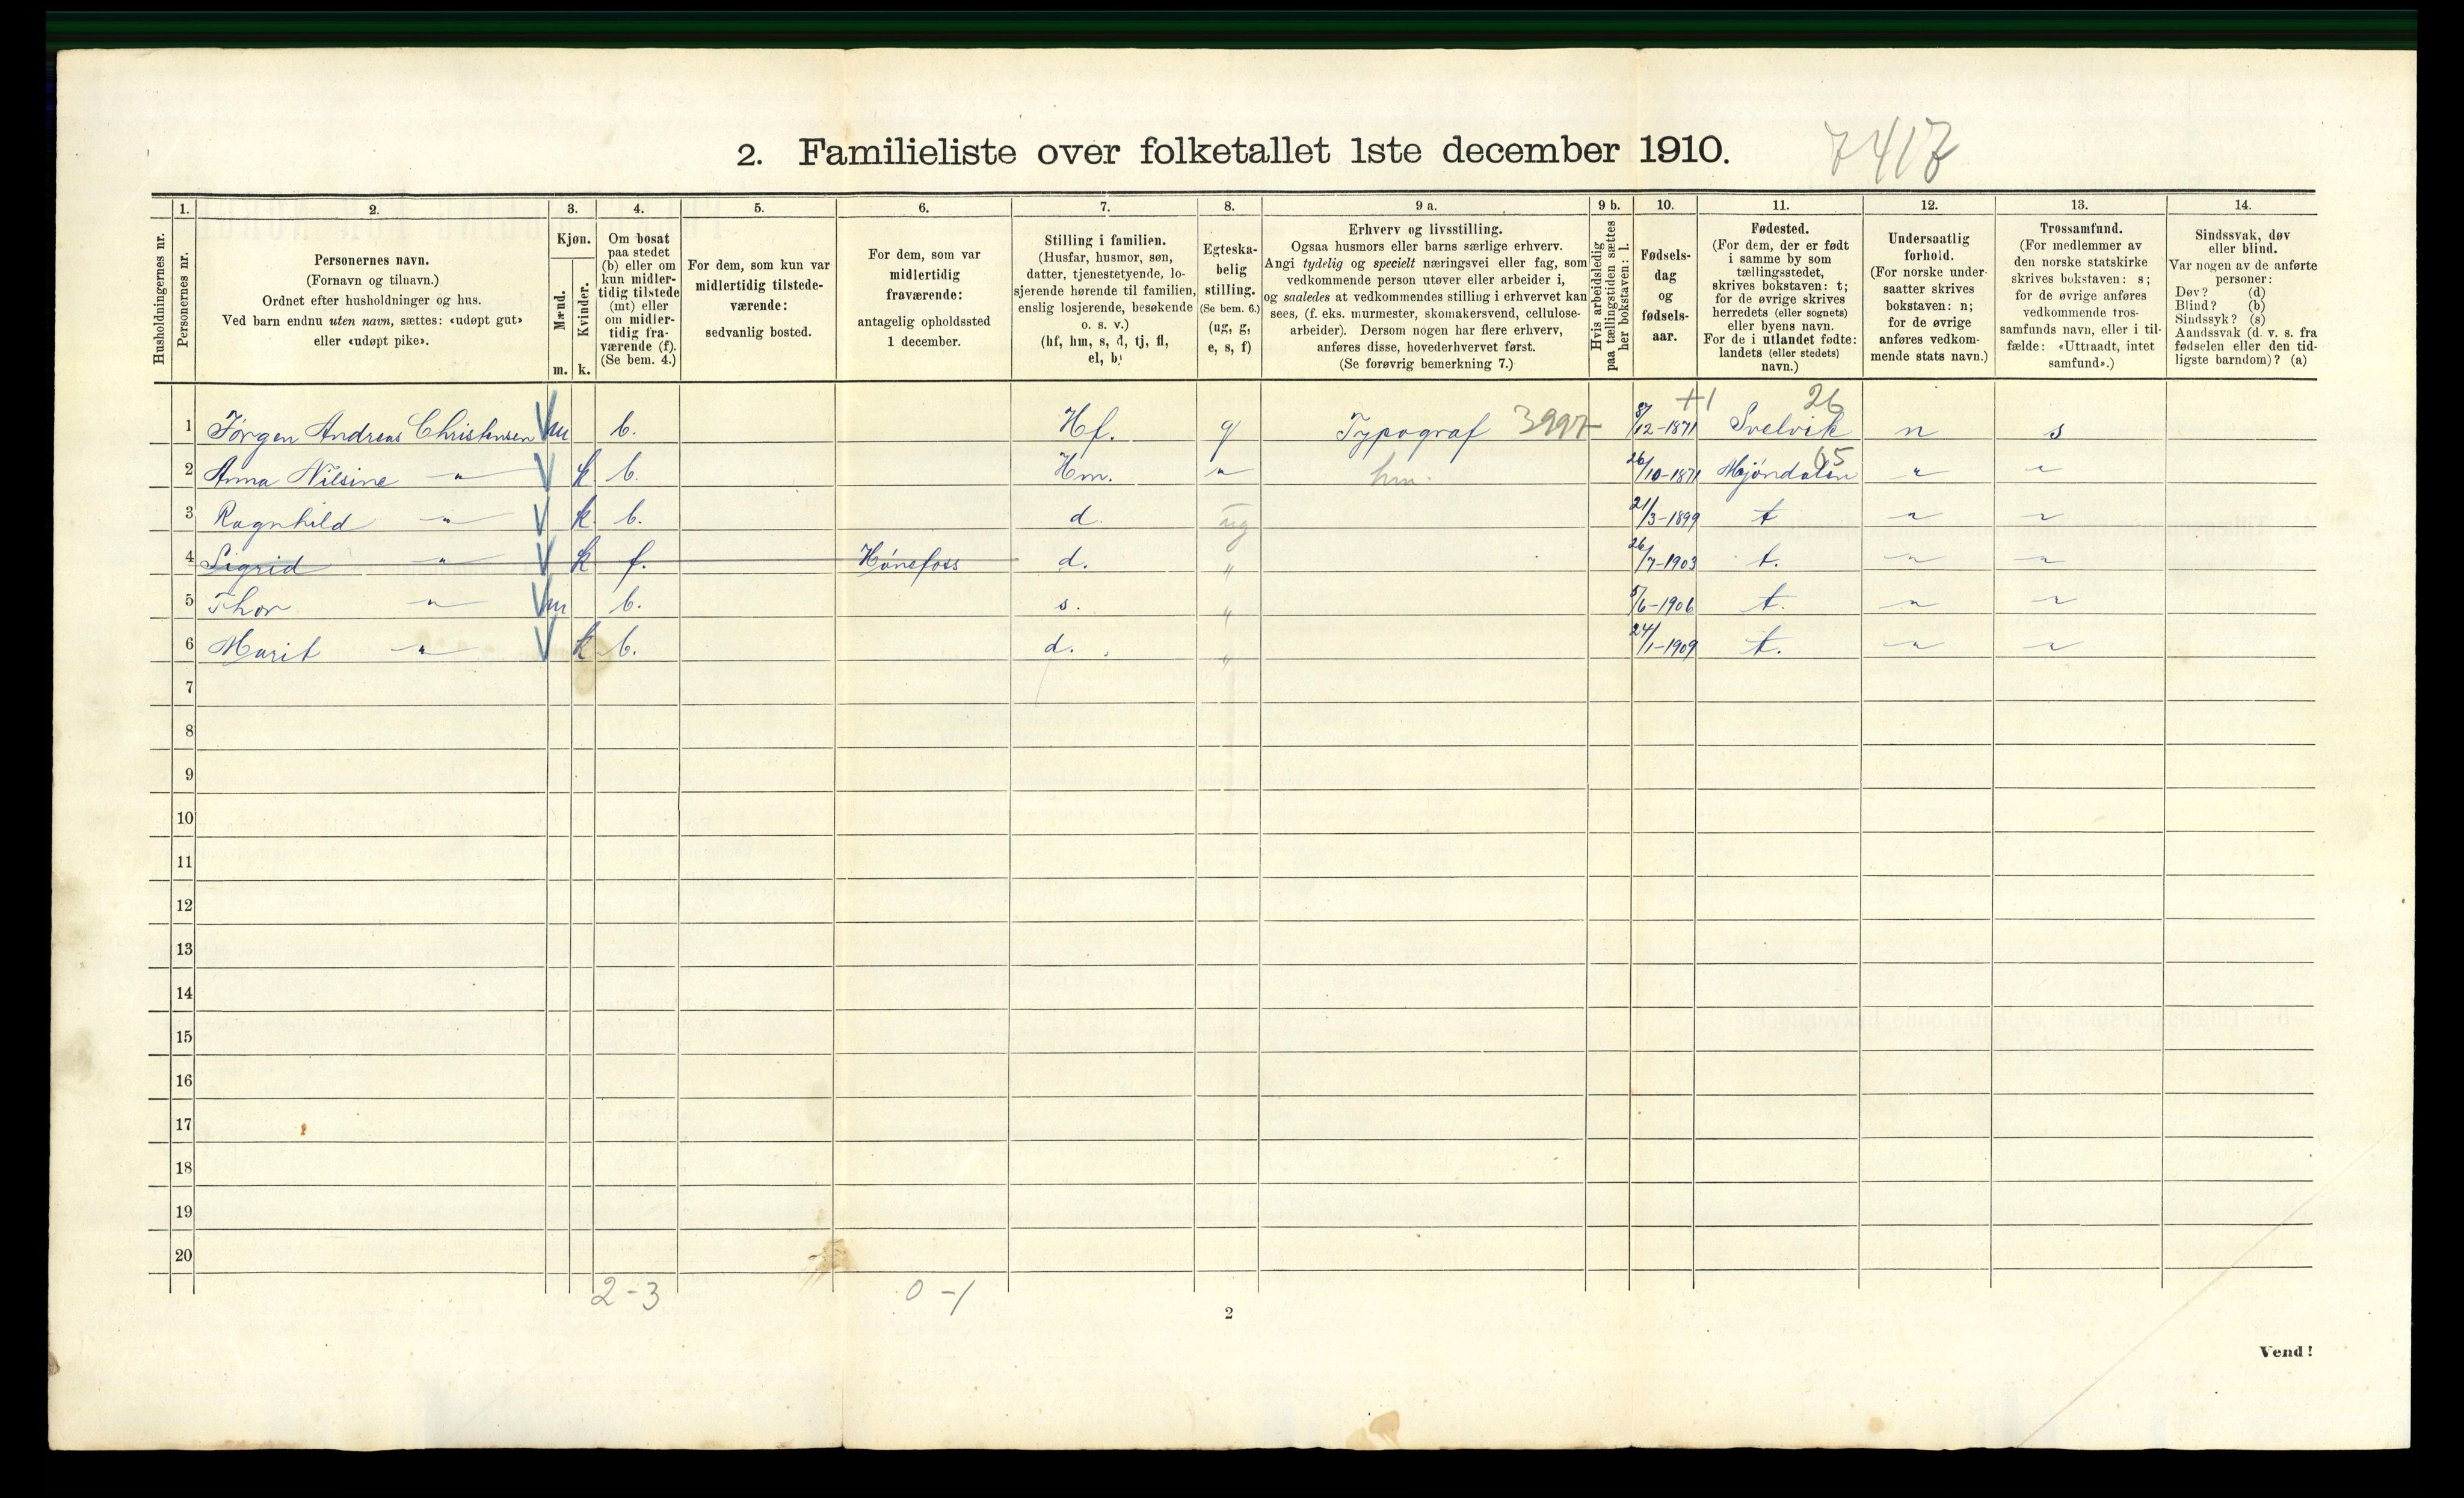 2. Familieliste over folketallet 1ste december 1910.
7417
Husholdningernes nr.
1.
Personernes nr.
2.
Personernes navn.
(Fornavn og tilnavn.)
Ordnet efter husholdninger og hus.
Ved barn endnu uten navn, sættes: «udøpt gut»
eller «udøpt pike».
3.
Kjøn.
Mænd.
Kvinder.
m. k.
4.
Om bosat
paa stedet
(b) eller om
kun midler-
tidig tilstede
(mt) eller
om midler-
tidig fra-
værende (f).
(Se bem. 4.)
5.
For dem, som kun var
midlertidig tilstede-
værende:
sedvanlig bosted.
6.
For dem, som var
midlertidig
fraværende:
antagelig opholdssted
1 december.
7.
Stilling i familien.
(Husfar, husmor, søn,
datter, tjenestetyende, lo-
sjerende hørende til familien,
enslig losjerende, besøkende
o. s. v.)
(hf, hm, s, d, tj, fl,
el, b)
8.
Egteska-
belig
stilling.
(Se bem. 6.)
(ug, g,
e, s, f)
9 a.
Erhverv og livsstilling.
Ogsaa husmors eller barns særlige erhverv.
Angi tydelig og specielt næringsvei eller fag, som
vedkommende person utøver eller arbeider i,
og saaledes at vedkommendes stilling i erhvervet kan
sees, (f. eks. murmester, skomakersvend, cellulose-
arbeider). Dersom nogen har flere erhverv,
anføres disse, hovederhvervet først.
(Se forøvrig bemerkning 7.)
9 b.
Hvis arbeidsledig
paa tællingstiden sættes
her bokstaven: l.
10.
Fødsels-
dag
og
fødsels-
aar.
11.
Fødested.
(For dem, der er født
i samme by som
tællingsstedet,
skrives bokstaven: t;
for de øvrige skrives
herredets (eller sognets)
eller byens navn.
For de i utlandet fødte:
landets (eller stedets)
navn.)
12.
Undersaatlig
forhold.
(For norske under-
saatter skrives
bokstaven: n;
for de øvrige
anføres vedkom-
mende stats navn.)
13.
Trossamfund.
(For medlemmer av
den norske statskirke
skrives bokstaven: s;
for de øvrige anføres
vedkommende tros-
samfunds navn, eller i til-
fælde: «Uttraadt, intet
samfund».)
14.
Sindssvak, døv
eller blind.
Var nogen av de anførte
personer:
Døv? (d)
Blind? (b)
Sindssyk? (s)
Aandssvak (d. v. s. fra
fødselen eller den tid-
ligste barndom)? (a)
+1 26
1 Jørgen Andreas Christensen V m b. Hf. g Typograf 3997 8/12-1871 Svelvik n s
2 Anna Nilsine " V k b. Hm. " hm. 26/10-1871 Mjøndalen 05 " "
3 Ragnhild " V k. b. d. ug 21/3-1899 t " "
4 Sigrid " V k f. Hønefoss d. " 26/7-1903 t. " "
5 Thor " V m b. s. " 5/6-1906 t. " "
6 Marit " V k b. d. " 24/1-1909 t. " "
7
8
9
10
11
12
13
14
15
16
17
18
19
20
2-3 0-1
2
Vend!